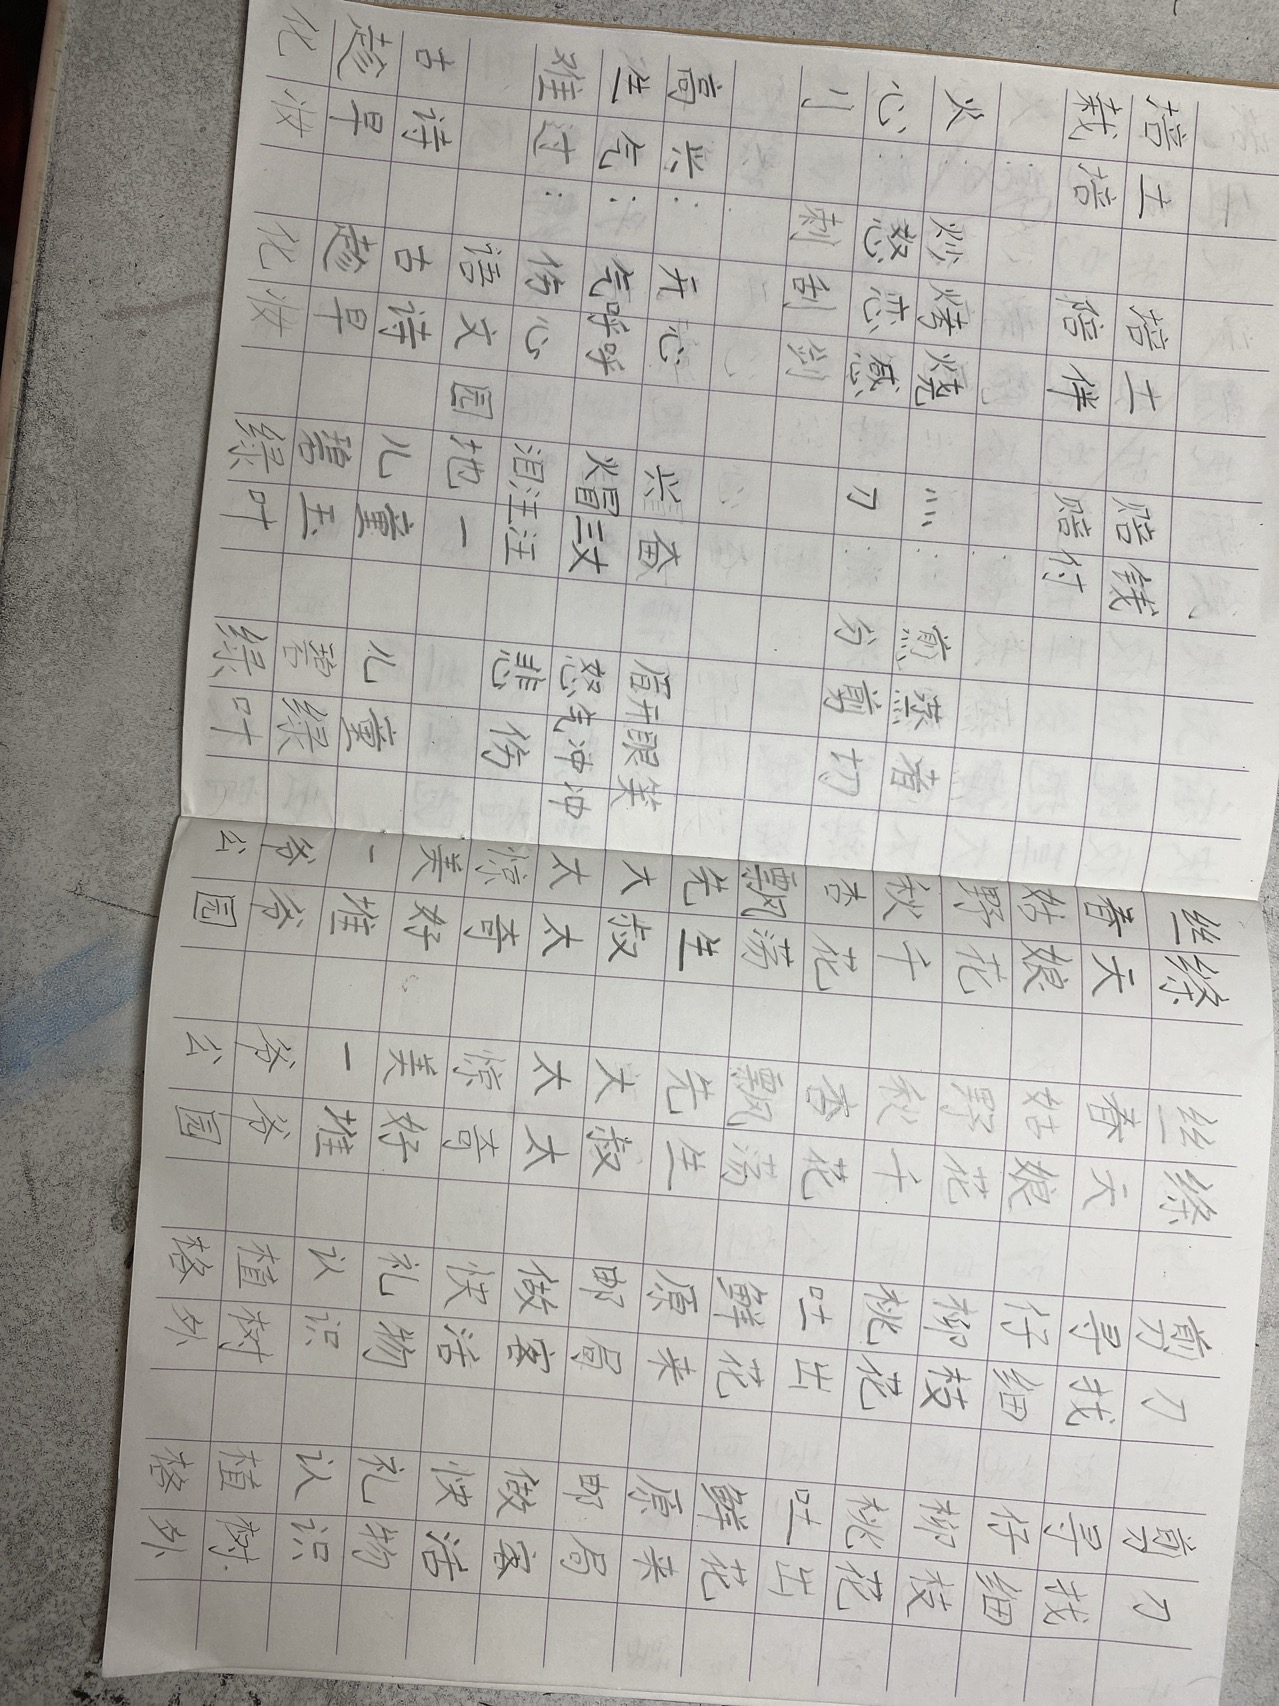 培土 培土 赔钱
栽培 陪伴 赔付
火: 炒烤烧 灬: 煎蒸煮
心: 怒恋感 刀: 分剪切
刂: 刺刮剑
高兴: 开心 兴奋 眉开眼笑
生气: 气呼呼 火冒三丈 怒气冲冲
难过: 伤心 泪汪汪 悲伤
语文园地一
古诗 古诗 儿童 儿童
趁早 趁早 碧玉 碧绿
化妆 化妆 绿叶 绿叶
丝绦 丝绦 剪刀 剪刀
春天 春天 寻找 寻找
姑娘 姑娘 仔细 仔细
野花 野花 柳枝 柳枝
秋千 秋千 桃花 桃花
杏花 杏花 吐出 吐出
飘荡 飘荡 鲜花 鲜花
先生 先生 原来 原来
大叔 大叔 邮局 邮局
太太 太太 做客 做客
惊奇 惊奇 快活 快活
美好 美好 礼物 礼物
一堆 一堆 认识 认识
爷爷 爷爷 植树 植树
公园 公园 格外 格外